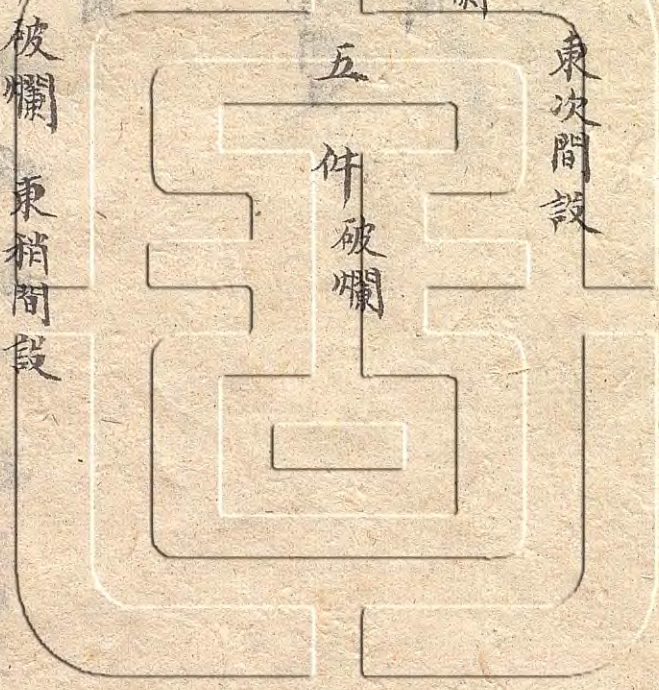 東次間設
五件破爛
破爛 東稍間設